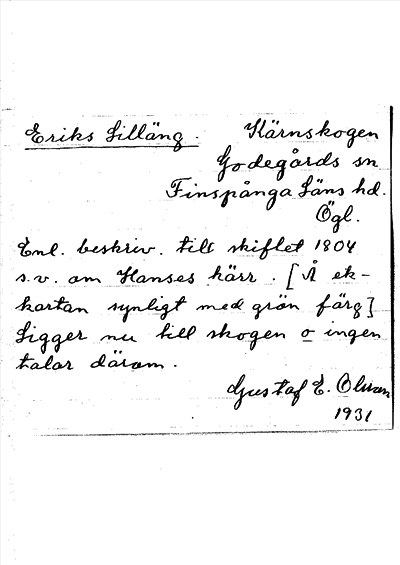 Eriks Lilläng. Kärnskogen
Godegårds sn
Finspånga Läns hd.
Ögl.
Enl. beskriv. till skiftet 1804
s.v. om Hanses kärr. [Å ek-
kartan synligt med grön färg]
Ligger nu till skogen o ingen
talar därom.
Gustaf E. Olman
1931